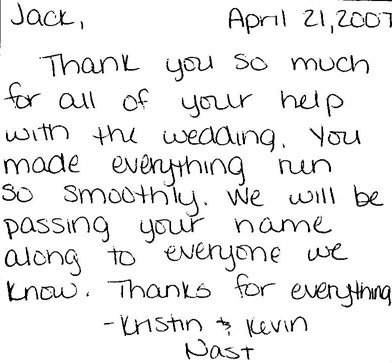 Jack, April 21, 2007
Thank you so much
for all of your help
with the wedding. You
made everything run
so smoothly. We will be
passing your name
along to everyone we
know. Thanks for everything
-Kristin & Kevin
Nast